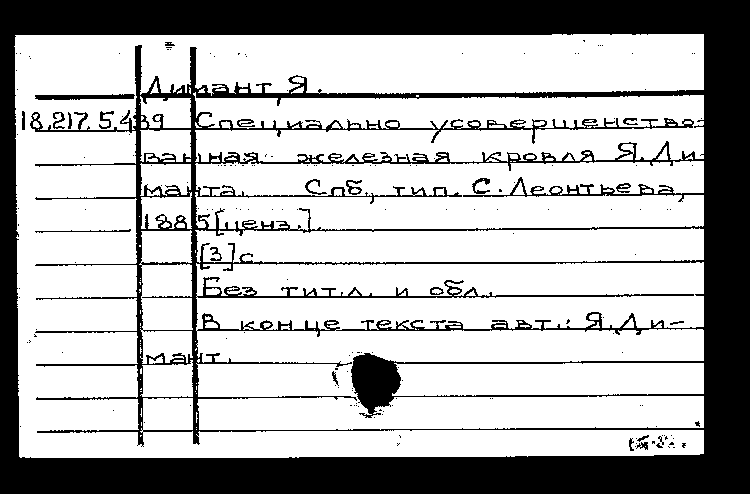 Димант, Я.
18.217.5.439 Специально усовершенство-
ванная железная кровля Я. Ди-
манта. Спб., тип. С. Леонтьева,
1885 [ценз.].
[3] с.
Без тит. л. и обл.
В конце текста авт.: Я. Ди-
мант.